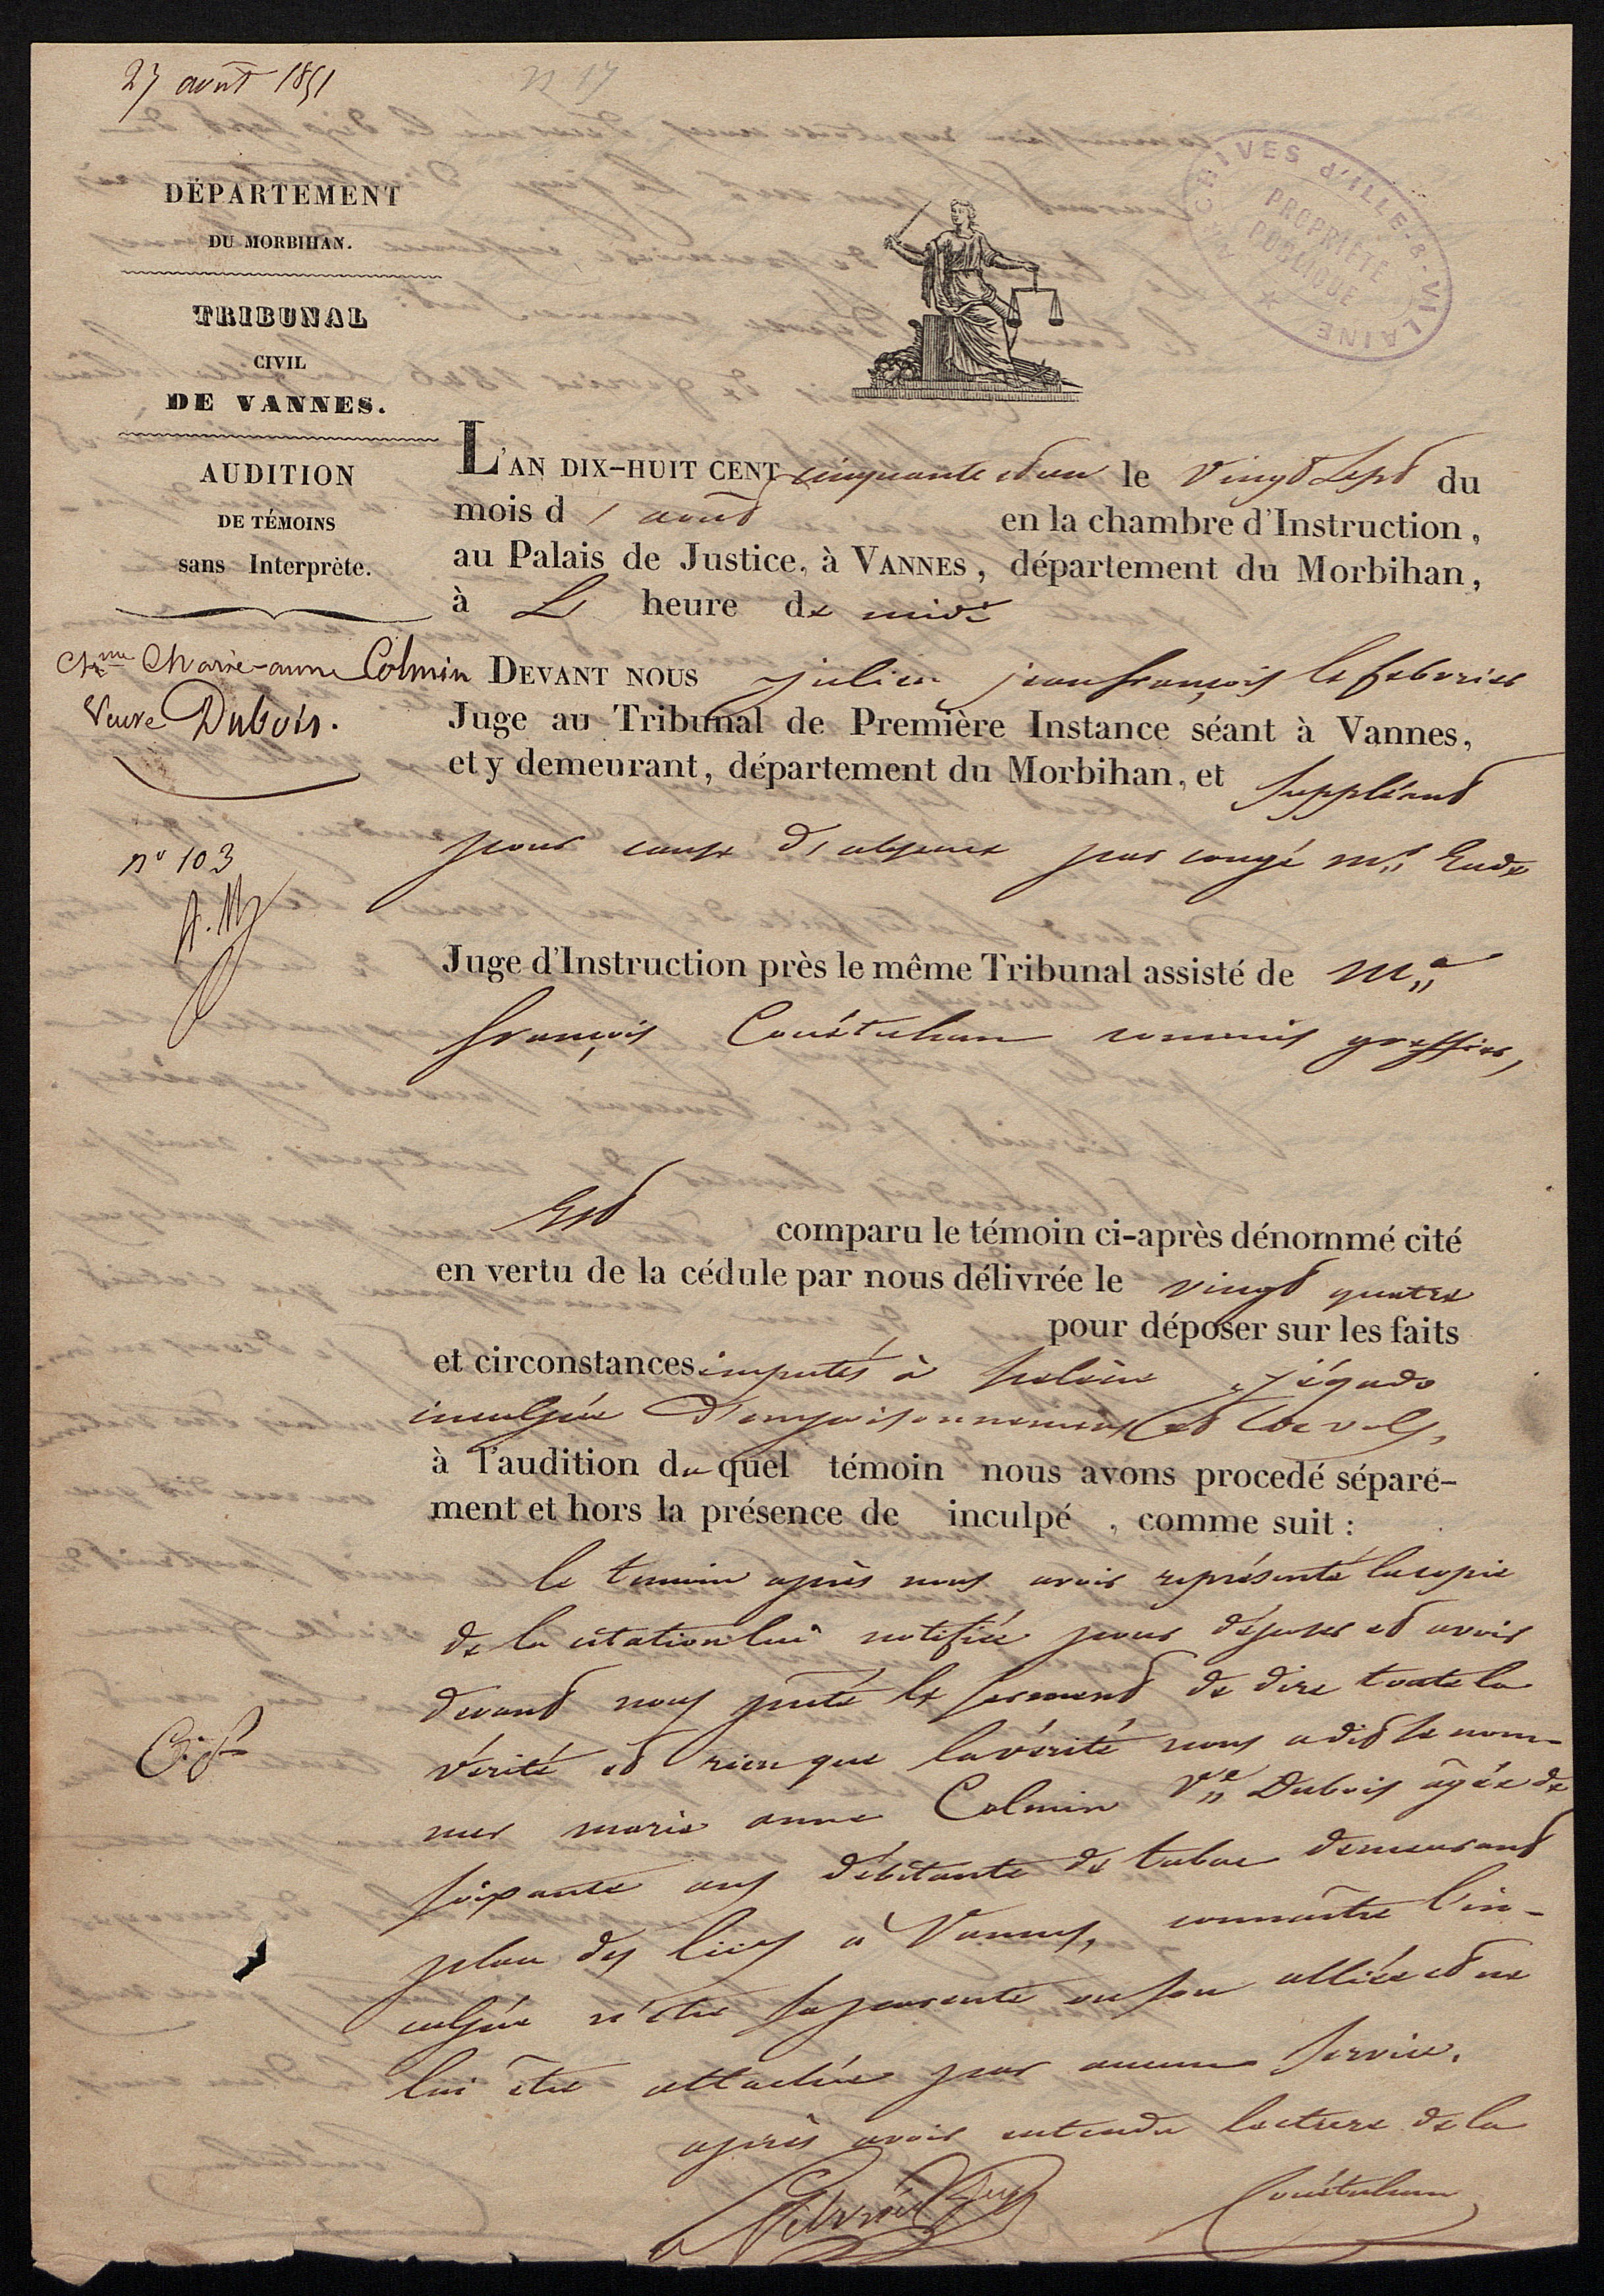 27 août 1851
n 17
DÉPARTEMENT
DU MORBIHAN.
TRIBUNAL
CIVIL
DE VANNES.
AUDITION
DE TÉMOINS
sans Interprète.
Marie-anne Colmin
Veuve Dubois.
n° 103
ARCHIVES d'ILLE-&-VILAINE
PROPRIÉTÉ
PUBLIQUE
L'AN DIX-HUIT CENT cinquante et un le vingt sept du
mois d'août en la chambre d'Instruction,
au Palais de Justice, à VANNES, département du Morbihan,
à L heure de midi
DEVANT NOUS julien jean françois le febvrier
Juge au Tribunal de Première Instance séant à Vannes,
et y demeurant, département du Morbihan, et suppléant
pour cause d'absence par congé Mr Eude
Juge d'Instruction près le même Tribunal assisté de Me
françois Couëtuhan commis greffier,
Est comparu le témoin ci-après dénommé cité
en vertu de la cédule par nous délivrée le vingt quatre
pour déposer sur les faits
et circonstances imputés à helène jégado
inculpée d'empoisonnement et de vols,
à l'audition duquel témoin nous avons procedé séparé-
ment et hors la présence de inculpé, comme suit :
le temoin après nous avoir représenté la copie
de la citation lui notifiée pour déposer et avoir
devant nous prêté le serment de dire toute la
vérité et rien que la vérité nous a dit se nom-
mer marie anne Colmin Ve Dubois âgée de
soixante ans débitante de tabac demeurant
place des lices à Vannes, connaître l'in-
culpée n'être sa parente ou son alliée et ne
lui être attachée par aucun service.
après avoir entendu lecture de la
Couëtuhan